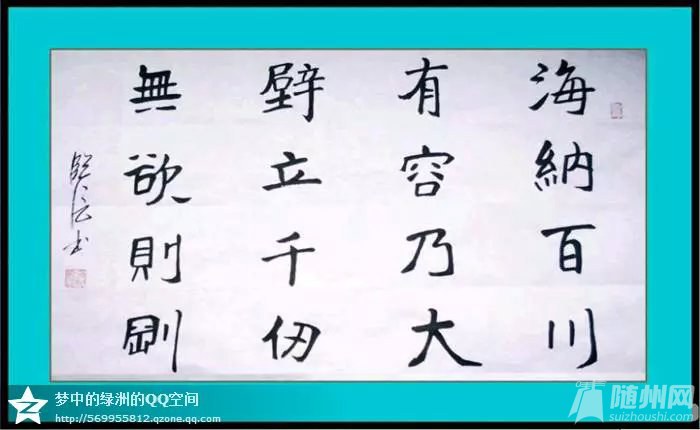 海納百川
有容乃大
壁立千仞
無欲則剛
梦中的绿洲的QQ空间
http://569955812.qzone.qq.com
随州网
suizhoushi.com